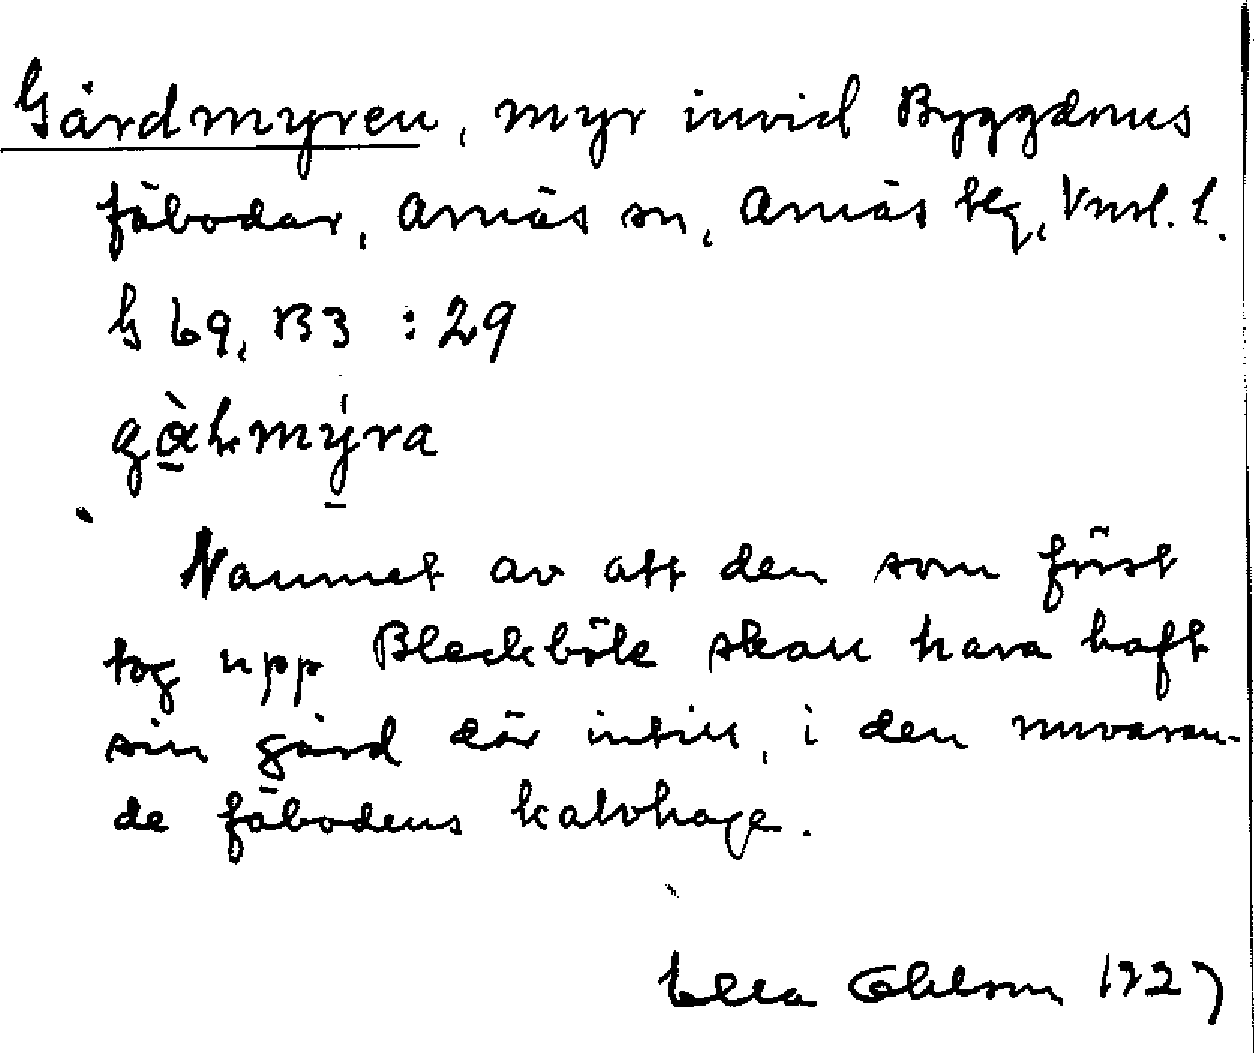 Gårdmyren, myr invid Byggdenus
fäbodar, Arnäs sn, Arnäs tlg, Vnrl. l.
G 69, B3 : 29
gàlmýra
Namnet av att den som först
tog upp Bleckböle skall hava haft
sin gård där intill, i den nuvaran-
de fäbodens kalvhage.
Ella Ohlson 1927